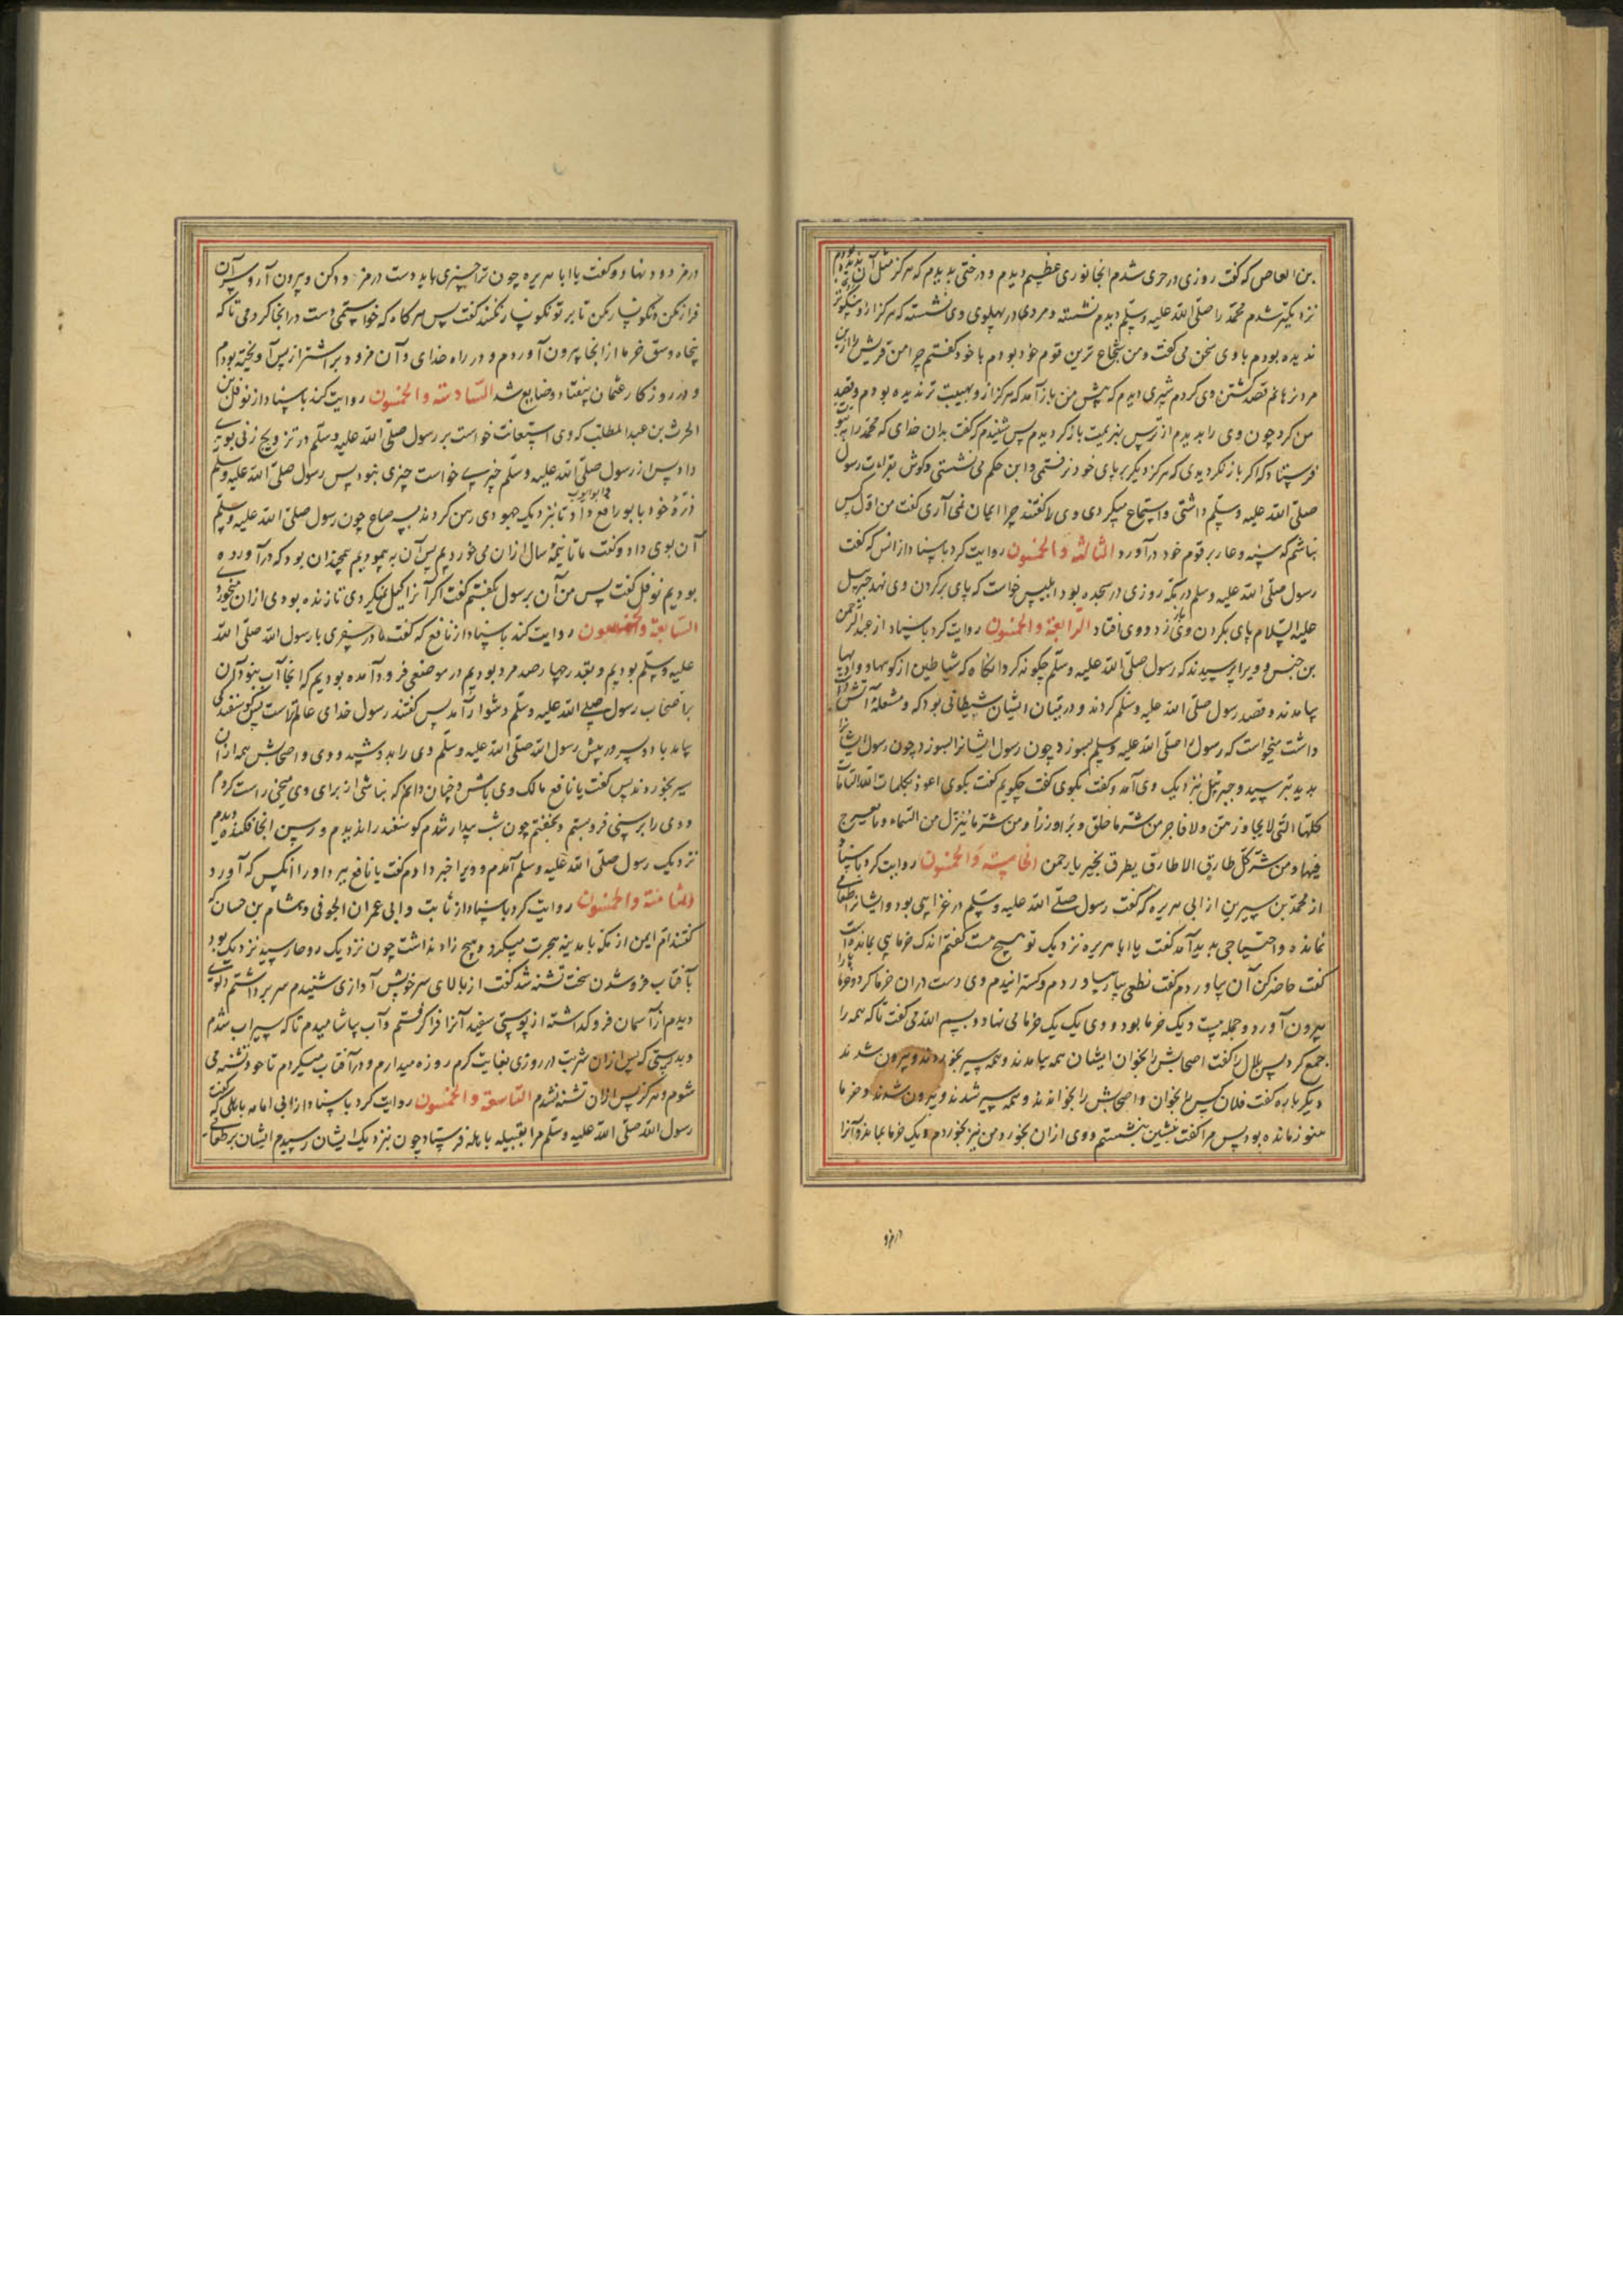 بن العاص که گفت روزی در حری شدم انجا نوری عظیم دیدم و درختی بدیدم که هرکز مثل آن ندیده بودم
نزدیکتر شدم محمد را صلی الله علیه وسلم دیدم نشسته و مردی در پهلوی وی نشسته که هرکز ازو نیکوتر
ندیده بودم با وی سخن می کفت و من شجاع ترین قوم خود بودم با خود کفتم چرا من قریش را ازین
مرد نرهانم قصد کشتن وی کردم شیری دیدم که پیش من باز آمد که هرکز ازو بهیبت تر ندیده بودم و قصد
من کرد چون وی را بدیدم از ترس بهزیمت بازکردیدم پس شنیدم که کفت بدان خدای که محمد را به
فرستاد که اکر بازنکردیدی که هرکز دیکر بر پای خود نرفتمی و ابن حکم می نشستی و کوش بقراءت رسول
صلی الله علیه وسلم داشتی و استماع میکردی وی را کفتند چرا ایمان نمی آری کفت من اول کس
نباشم که و عار بر قوم خود درآورد الثالثة والخمسون روایت کرد باسناد از انس که کفت
رسول صلی الله علیه وسلم در مکه روزی در سجده بود ابلیس خواست که پای بر کردن وی نهد جبرییل
علیه السلام پای بکردن وی زد و وی افتاد الرابعة والخمسون روایت کرد باسناد از عبدالرحمن
بن و ویرا پرسیدند که رسول صلی الله علیه وسلم چکونه کرد انکاه که شیاطین از کوهها و وادیها
بیامدند و قصد رسول صلی الله علیه وسلم کردند و در میان ایشان شیطانی بود که و مشعلهٔ آتش
داشت میخواست که رسول را صلی الله علیه وسلم بسوزد چون رسول ایشانرا
بدید بترسید و جبرئیل نزدیک وی آمد و کفت بکوی کفت چکویم کفت بکوی اعوذ بکلمات الله التامات
کلها التی لا یجاوزهن بر ولا فاجر من شر ما خلق وبرأ وذرأ ومن شر ما ینزل من السماء وما یعرج
فیها ومن شر کل طارق الا طارقا یطرق بخیر یا رحمن الخامسة والخمسون روایت کرد باسناد
از محمد بن سیرین از ابی هریره که کفت رسول صلی الله علیه وسلم در غزایی بود و ایشانرا طعامی
نمانده و احتیاجی بدید آمد کفت یا ابا هریره نزدیک تو هیچ هست کفتم اندک خرمایی بمانده است
کفت حاضر کن آن بیاوردم کفت نطعی بیار بیاوردم و کسترانیدم وی دست در ان خرما کرد و خرما را
بیرون آورد و جمله بیست و یک خرما بود و وی یک یک خرما می نهاد و بسم الله می کفت تا که همه را
جمع کرد پس بلال را کفت اصحابش را بخوان ایشان همه بیامدند و همه سیر بخوردند و بیرون شدند
دیکر باره کفت فلان کس را بخوان و اصحابش را بخواندند و همه سیر شدند و بیرون شدند و خرما
هنوز مانده بود پس مرا کفت بنشین بنشستم و وی ازان بخورد و من نیز بخوردم و یک خرما بماند و آنرا
در مزود نهاد و کفت یا ابا هریره چون ترا چیزی باید دست در مزود کن و بیرون آر و سر آن
فراز مکن و نکونسار مکن تا بر تو نکونسار نکنند کفت پس هرکاه که خواستمی دست در انجا کردمی تا که
پنجاه وسق خرما از انجا بیرون آوردم و در راه خدای و آن مزود بر اشتر از پس آویخته بودم
و در روزکار عثمان بیفتاد و ضایع شد السادسة والخمسون روایت کند باسناد از نوفل بن
الحرث بن عبدالمطلب که وی استعانت خواست بر رسول صلی الله علیه وسلم در تزویج زنی بوی
داد پس از رسول صلی الله علیه وسلم چیزی خواست چیزی نبود پس رسول صلی الله علیه وسلم
ذرهٔ خود بابو رافع و ابو ایوب داد تا بنزدیک جهودی رهن کردند بسی صاع جو پس رسول صلی الله علیه وسلم
آن بوی داد و کفت ما تا نیمهٔ سال ازان می خوردیم پس آن به پیمودیم همچندان بود که درآورده
بودیم نوفل کفت پس من آن برسول بکفتم کفت اکر آنرا کیل نمیکردی تا زنده بودی ازان میخوردی
السابعة والخمسون روایت کند باسناد از نافع که کفت ما در سفری با رسول الله صلی الله
علیه وسلم بودیم و بقدر چهارصد مرد بودیم در موضعی فرود آمده بودیم که انجا آب نبود آن
بر اصحاب رسول صلی الله علیه وسلم دشوار آمد پس کفتند رسول خدای عالم تر است پس کوسفندی
بیامد با دو سرو در پیش رسول الله صلی الله علیه وسلم وی را بدوشید و وی و اصحابش همه ازان
سیر بخوردند پس کفت یا نافع مالک وی باش و چنان دانم که نباشی از برای وی میخی راست کردم
و وی را برسنی فروبستم و بخفتم چون شب بیدار شدم کوسفند را ندیدم و رسن انجا فکنده دیدم
نزدیک رسول صلی الله علیه وسلم آمدم و ویرا خبر دادم کفت یا نافع ببرد او را انکس که آورد
الثامنة والخمسون روایت کرد باسناد از ثابت و ابی عمران الجونی و هشام بن حسان که
کفتند ام ایمن از مکه با مدینه هجرت میکرد و هیچ زاد نداشت چون نزدیک روحا رسید نزدیک بود
بآفتاب فروشدن سخت تشنه شد کفت از بالای سر خویش آوازی شنیدم سر برداشتم دلوی
دیدم از آسمان فروکذاشته از پوستی سفید آنرا فرا کرفتم و آب بیاشامیدم تا که سیراب شدم
و بدرستی که پس ازان شربت در روزی بغایت کرم روزه میدارم و در آفتاب میکردم تا خود تشنه می
شوم و هرکز پس ازان تشنه نشدم التاسعة والخمسون روایت کرد باسناد از ابی امامه باهلی که کفت
رسول الله صلی الله علیه وسلم مرا بقبیله باهله فرستاد چون بنزدیک ایشان رسیدم ایشان بر طعام